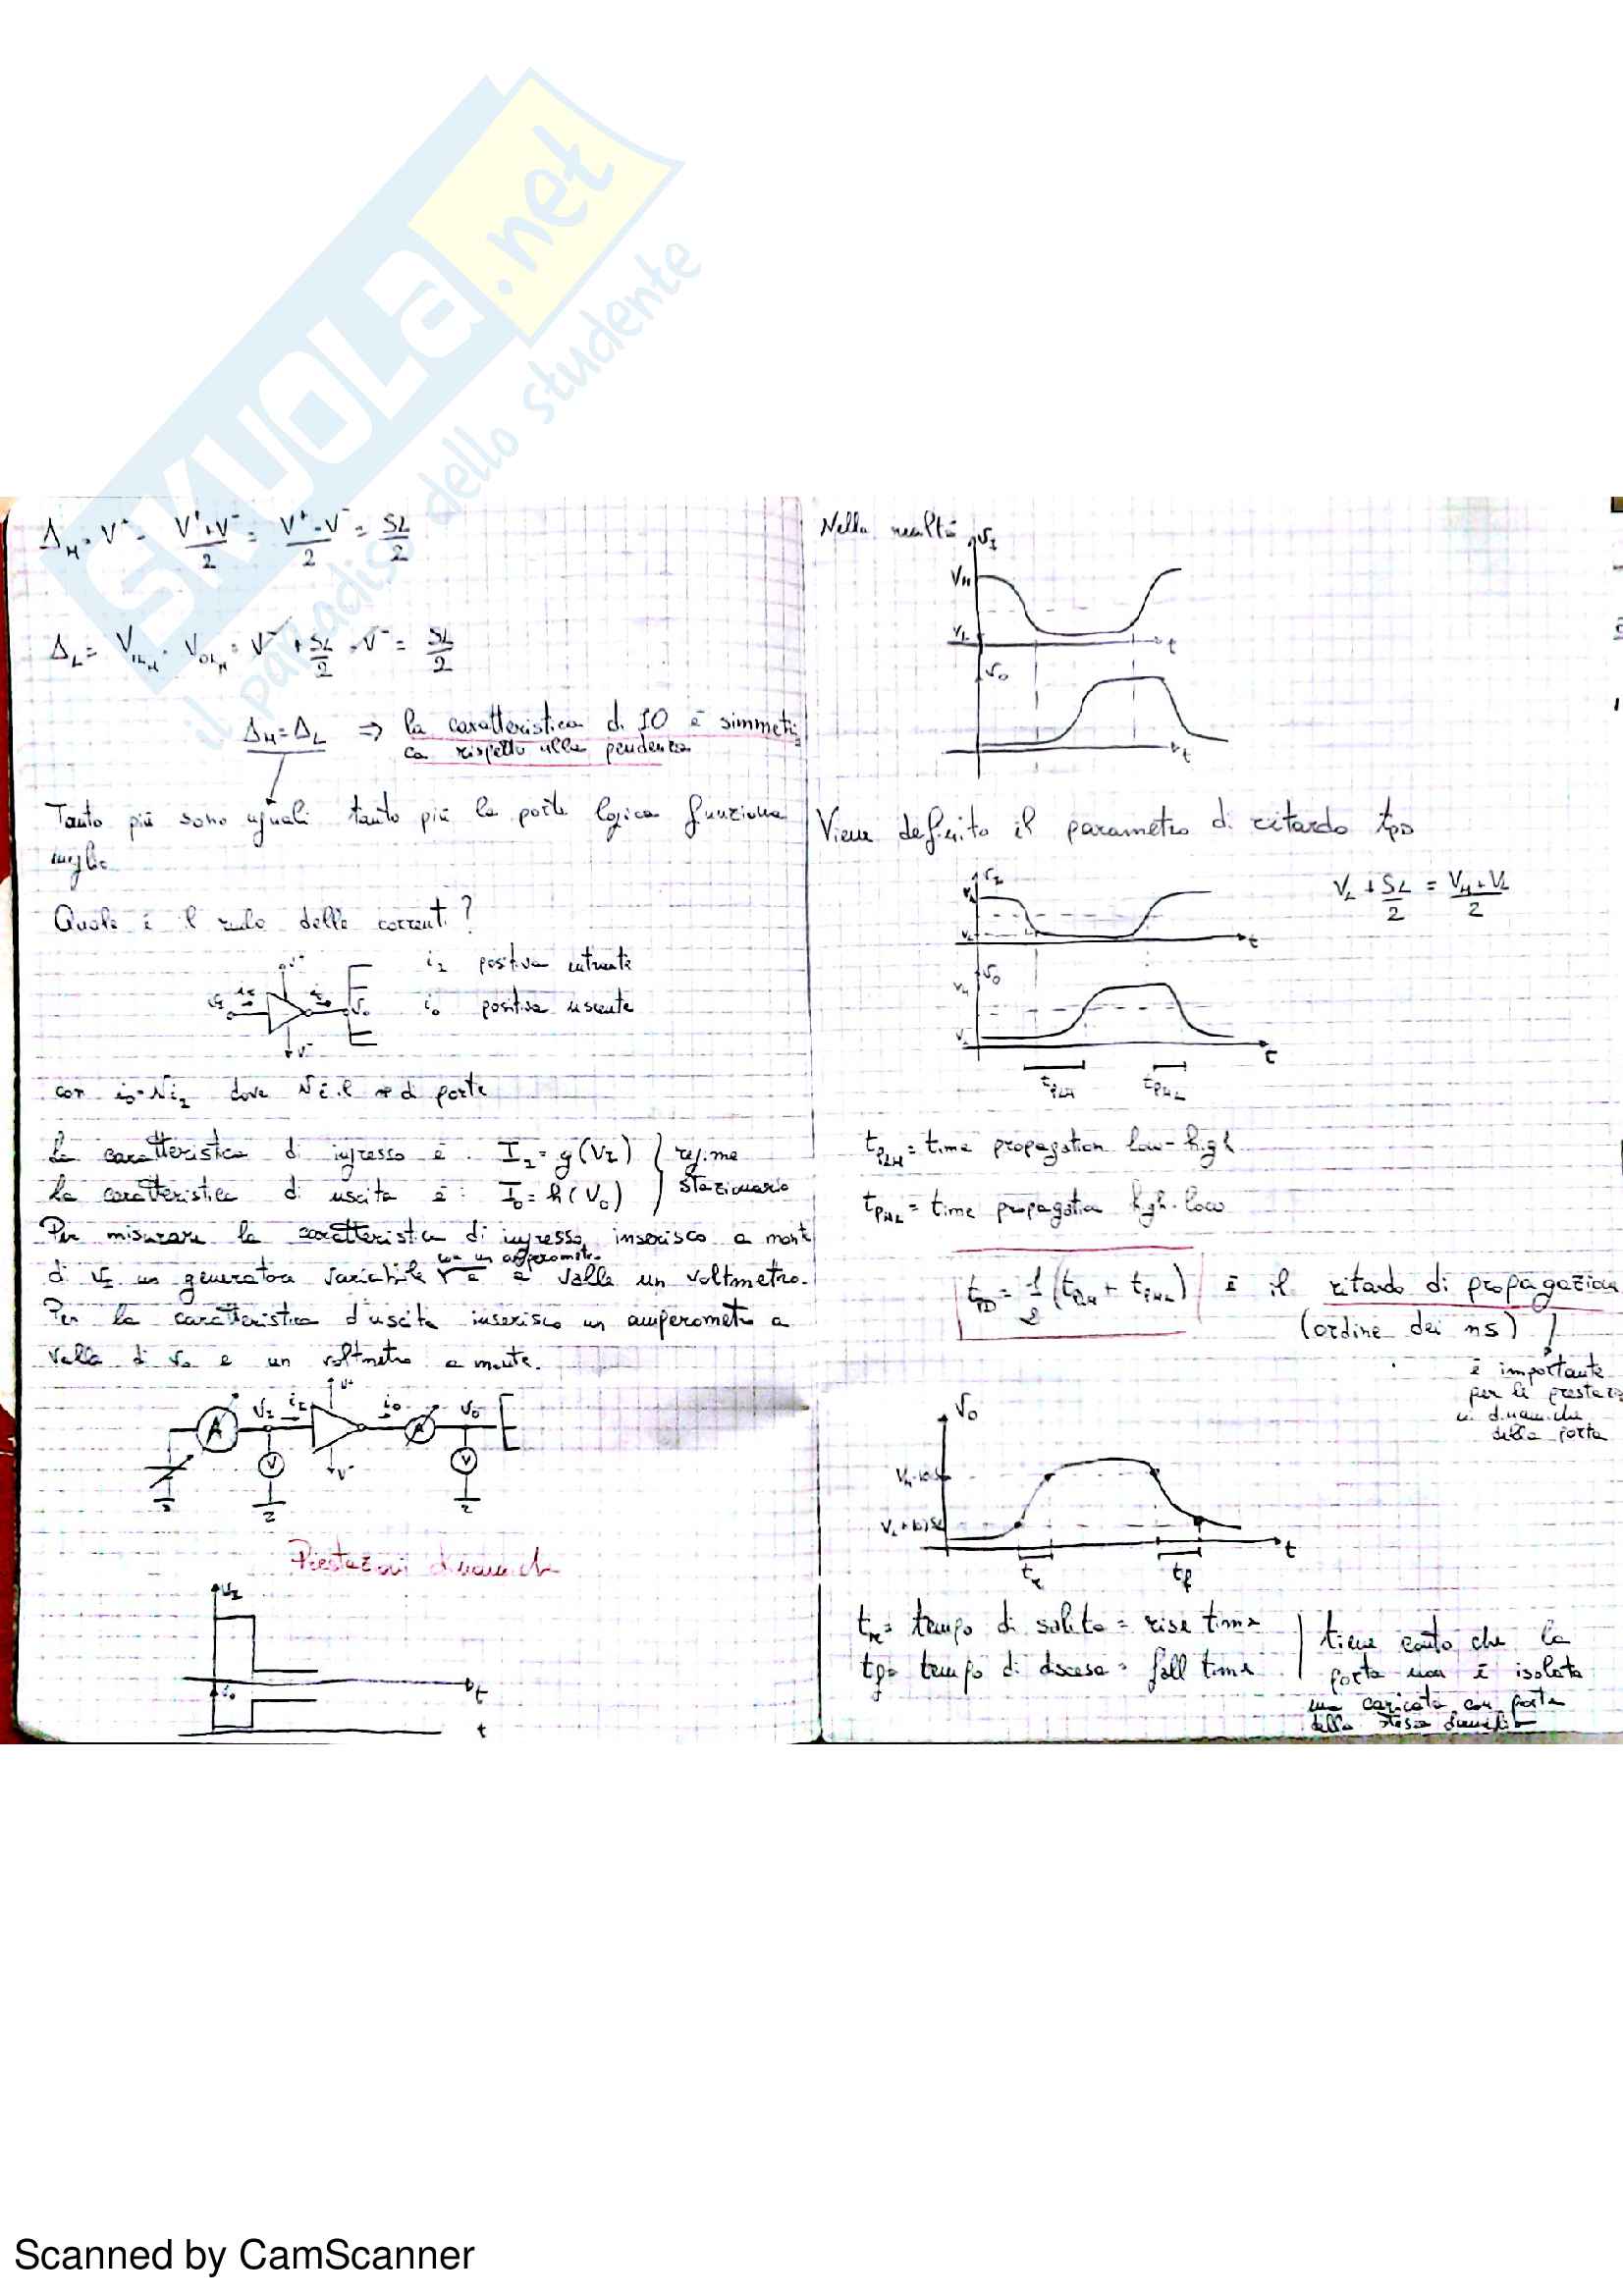 SKUOLA.net
il paradiso dello studente
Δ_H = V⁺ - (V⁺+V⁻)/2 = (V⁺-V⁻)/2 = SL/2
Δ_L = V_ILM - V_OLM = V⁻ + SL/2 - V⁻ = SL/2
Δ_H = Δ_L ⇒ la caratteristica di IO è simmetri
ca rispetto alla pendenza
Tanto più sono uguali tanto più la porta logica funziona
meglio
Quale è il ruolo delle correnti?
V⁺
i_I positiva entrante
v_I i_I i_o v_o
i_o positiva uscente
V⁻
con i_o = N i_I dove N è il n° di porte
La caratteristica di ingresso è: I_I = g(V_I) } regime
La caratteristica di uscita è: I_o = h(V_o) } stazionario
Per misurare la caratteristica di ingresso, inserisco a monte
con un amperometro
di v_I un generatore variabile e a valle un voltmetro.
Per la caratteristica d'uscita inserisco un amperometro a
valle di v_o e un voltmetro a monte.
V⁺
A V_I i_I i_o A V_o
V V⁻ V
Prestazioni dinamiche
v_I
t
v_o
t
Nella realtà
v_I
V_H
V_L
t
v_o
t
Viene definito il parametro di ritardo t_PD
v_I
V_H
V_L + SL/2 = (V_H+V_L)/2
V_L
t
v_o
V_H
V_L
t
t_PLH t_PHL
t_PLH = time propagation low-high
t_PHL = time propagation high-low
t_PD = 1/2 (t_PLH + t_PHL) è il ritardo di propagazion
(ordine dei ns)
è importante
per le prestazio
ni dinamiche
della porta
V_o
t
t_r t_f
t_r = tempo di salita = rise time
t_f = tempo di discesa = fall time
tiene conto che la
porta non è isolata
ma caricata con porte
della stessa famiglia
Scanned by CamScanner